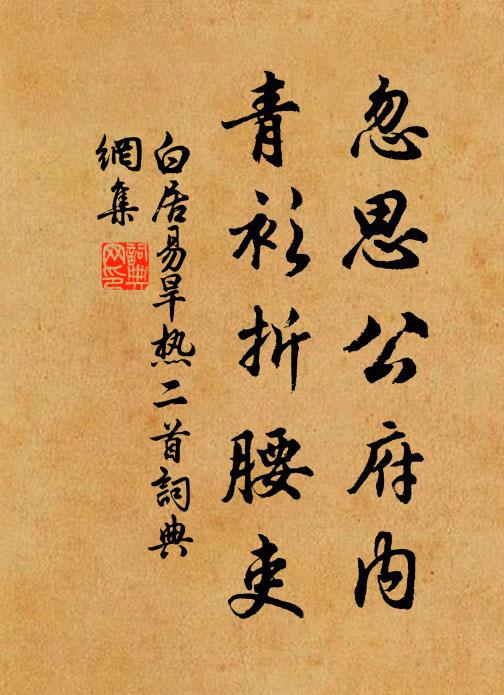 忽思公府内
青衫折腰吏
白居易旱热二首詞典
網集
詞典
网印